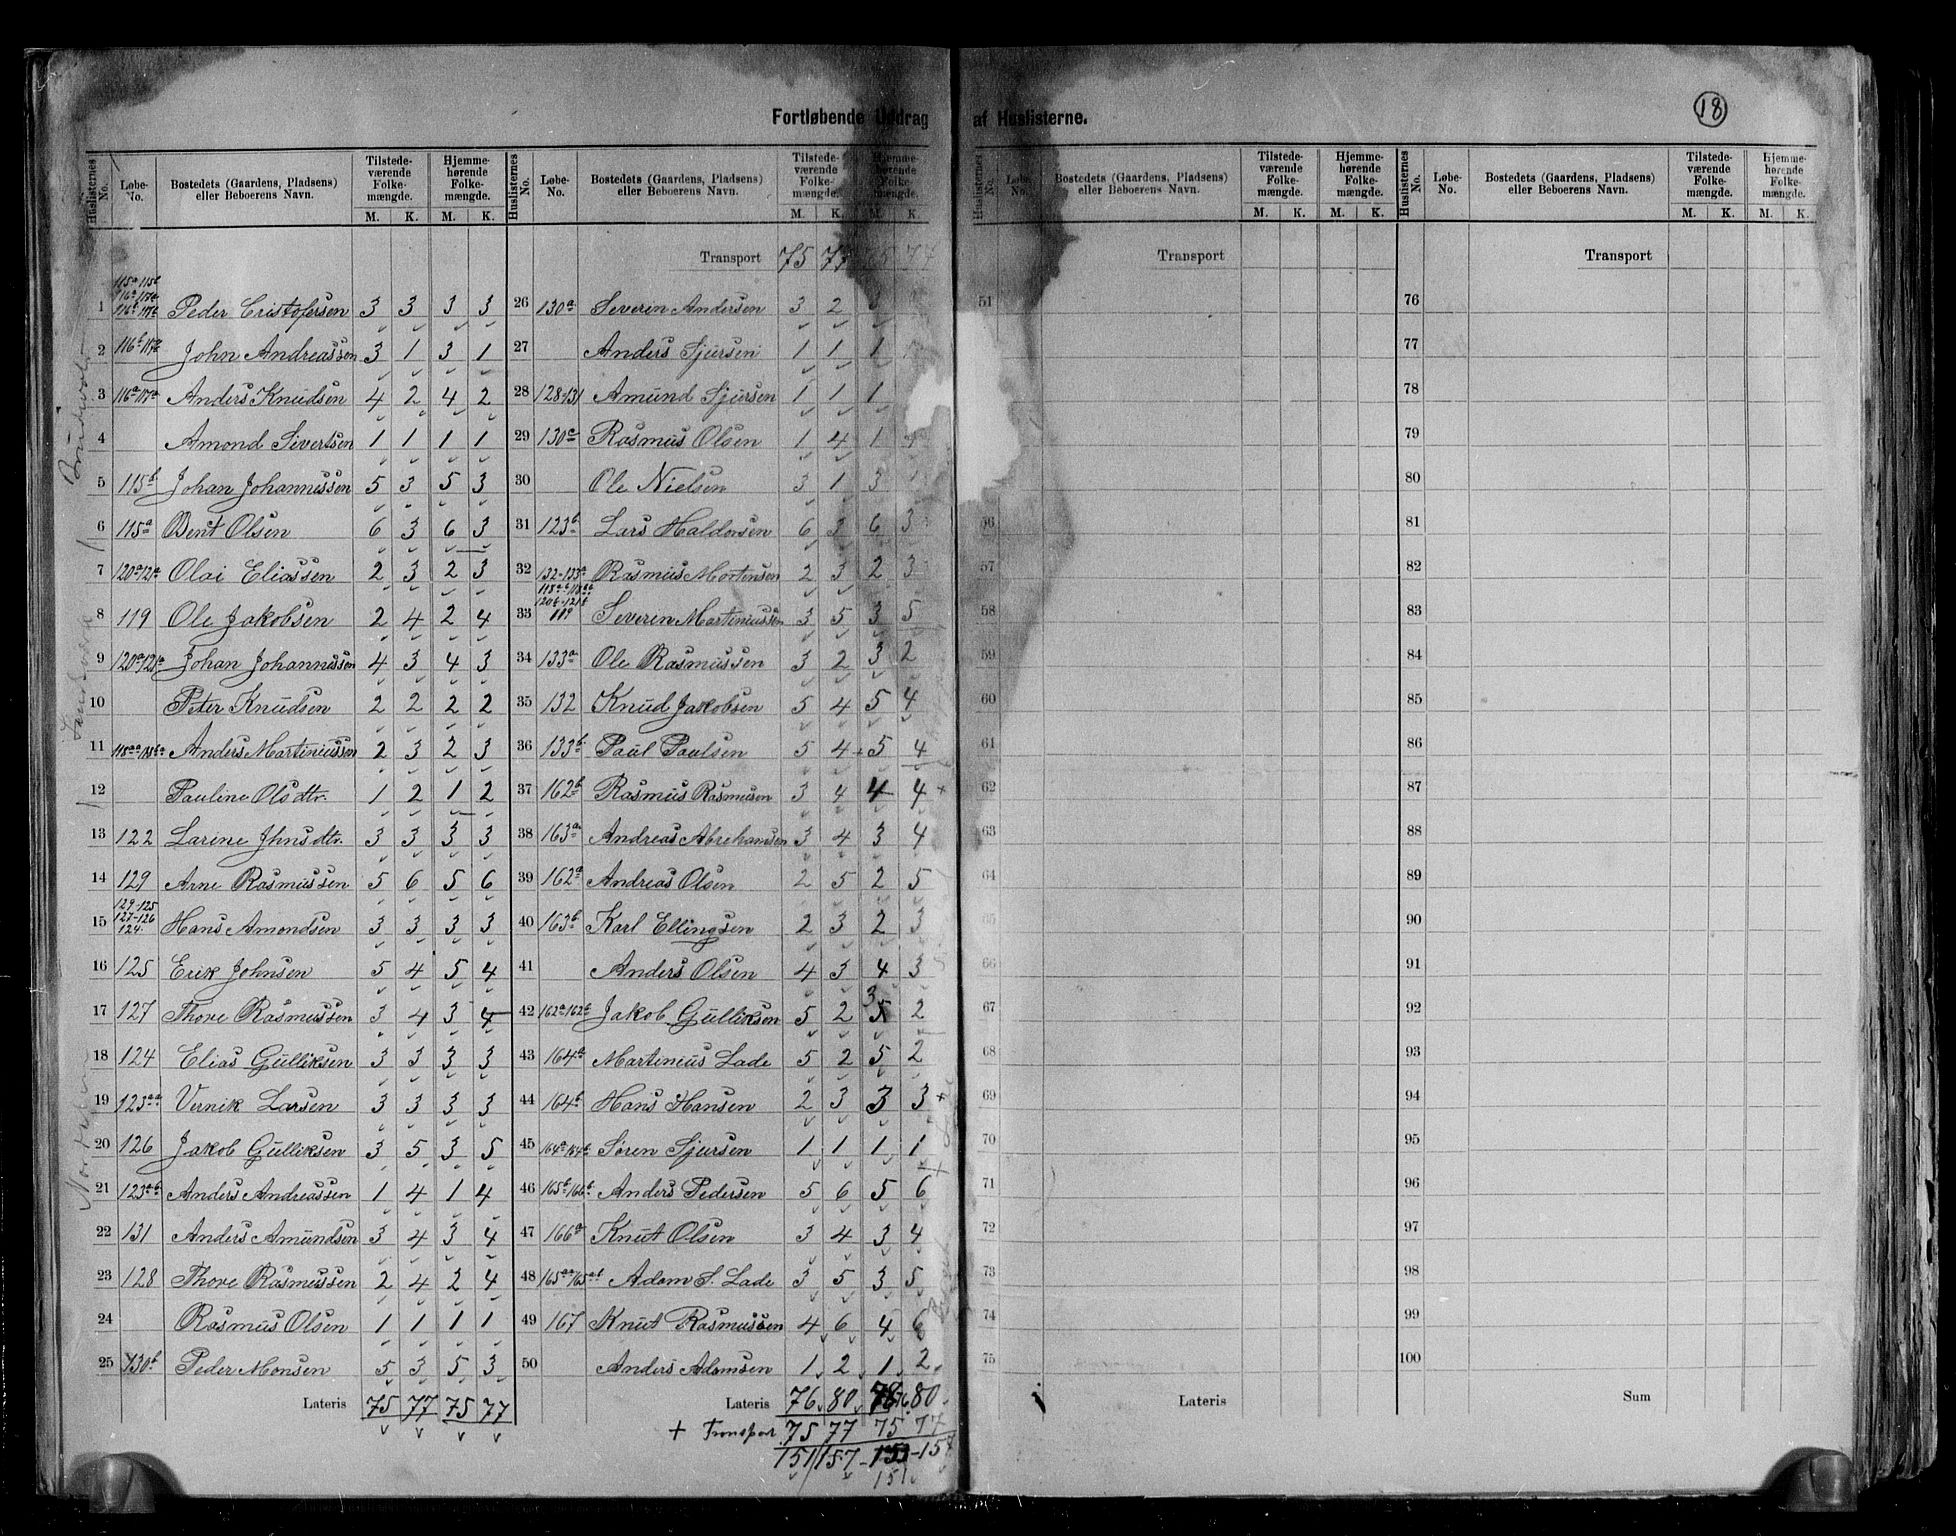 18
Fortløbende Uddrag af Huslisterne.
Huslisternes No. Løbe-No. Bostedets (Gaardens, Pladsens) eller Beboerens Navn. Tilstedeværende Folkemængde. M. K. Hjemmehørende Folkemængde. M. K.
1 Peder Cristofersen 3 3 3 3
2 John Andreassen 3 1 3 1
3 116a 117a Anders Knudsen 4 2 4 2
4 Amond Sivertsen 1 1 1 1
5 115b Johan Johannessen 5 3 5 3
6 115a Bent Olsen 6 3 6 3
7 120a 121a Olai Eliassen 2 3 2 3
8 119 Ole Jakobsen 2 4 2 4
9 120a 121a Johan Johannessen 4 3 4 3
10 Peter Knudsen 2 2 2 2
11 Anders Martinussen 2 3 2 3
12 Pauline Olsdtr. 1 2 1 2
13 122 Larine Jhnsdtr. 3 3 3 3
14 129 Arne Rasmussen 5 6 5 6
15 129-125 127-126 124. Hans Amondsen 3 3 3 3
16 125 Erik Johnsen 5 4 5 4
17 127 Thore Rasmussen 3 4 3 4
18 124 Elias Gulliksen 3 3 3 3
19 123aa Vernik Larsen 3 3 3 3
20 126 Jakob Gulliksen 3 5 3 5
21 123ab Anders Andreassen 1 4 1 4
22 131 Anders Amundsen 3 4 3 4
23 128 Thore Rasmussen 2 4 2 4
24 Rasmus Olsen 1 1 1 1
25 130b Peder Monsen 5 3 5 3
Lateris 75 77 75 77
Huslisternes No. Løbe-No. Bostedets (Gaardens, Pladsens) eller Beboerens Navn. Tilstedeværende Folkemængde. M. K. Hjemmehørende Folkemængde. M. K.
Transport 75 77 75 77
26 130a Severin Andersen 3 2 3
27 Anders Sjursen 1 1 1
28 128-131 Amund Sjursen 1 1 1
29 130a Rasmus Olsen 1 4 1 4
30 Ole Nielsen 3 1 3
31 123b Lars Haldorsen 6 3 6 3
32 132-133a Rasmus Mortensen 2 3 2 3
33 119 Severin Martinussen 3 5 3 5
34 133a Ole Rasmussen 3 2 3 2
35 132 Knud Jakobsen 5 4 5 4
36 133b Paul Paulsen 5 4 5 4
37 162b Rasmus Rasmusen 3 4 4 4
38 163a Andreas Abrehamsen 3 4 3 4
39 162a Andreas Olsen 2 5 2 5
40 163b Karl Ellingsen 2 3 2 3
41 Anders Olsen 4 3 4 3
42 162a 162b Jakob Gulliksen 5 2 3 5 2
43 164a Martinius Lade 5 2 5 2
44 164b Hans Hansen 2 3 3 3
45 164a 164b Søren Sjursen 1 1 1 1
46 165b 166b Anders Pedersen 5 6 5 6
47 166a Knut Olsen 3 4 3 4
48 165aa 165ab Adam S. Lade 3 5 3 5
49 167 Knut Rasmussen 4 6 4 6
50 Anders Adamsen 1 2 1 2
Lateris 76 80 76 80
+ Transport 75 77 75 77
151 157 153 157
151
Huslisternes No. Løbe-No. Bostedets (Gaardens, Pladsens) eller Beboerens Navn. Tilstedeværende Folkemængde. M. K. Hjemmehørende Folkemængde. M. K.
Transport
51
56
57
58
59
60
61
62
63
64
65
66
67
68
69
70
71
72
73
74
75
Lateris
Huslisternes No. Løbe-No. Bostedets (Gaardens, Pladsens) eller Beboerens Navn. Tilstedeværende Folkemængde. M. K. Hjemmehørende Folkemængde. M. K.
Transport
76
77
78
79
80
81
82
83
84
85
86
87
88
89
90
91
92
93
94
95
96
97
98
99
100
Sum